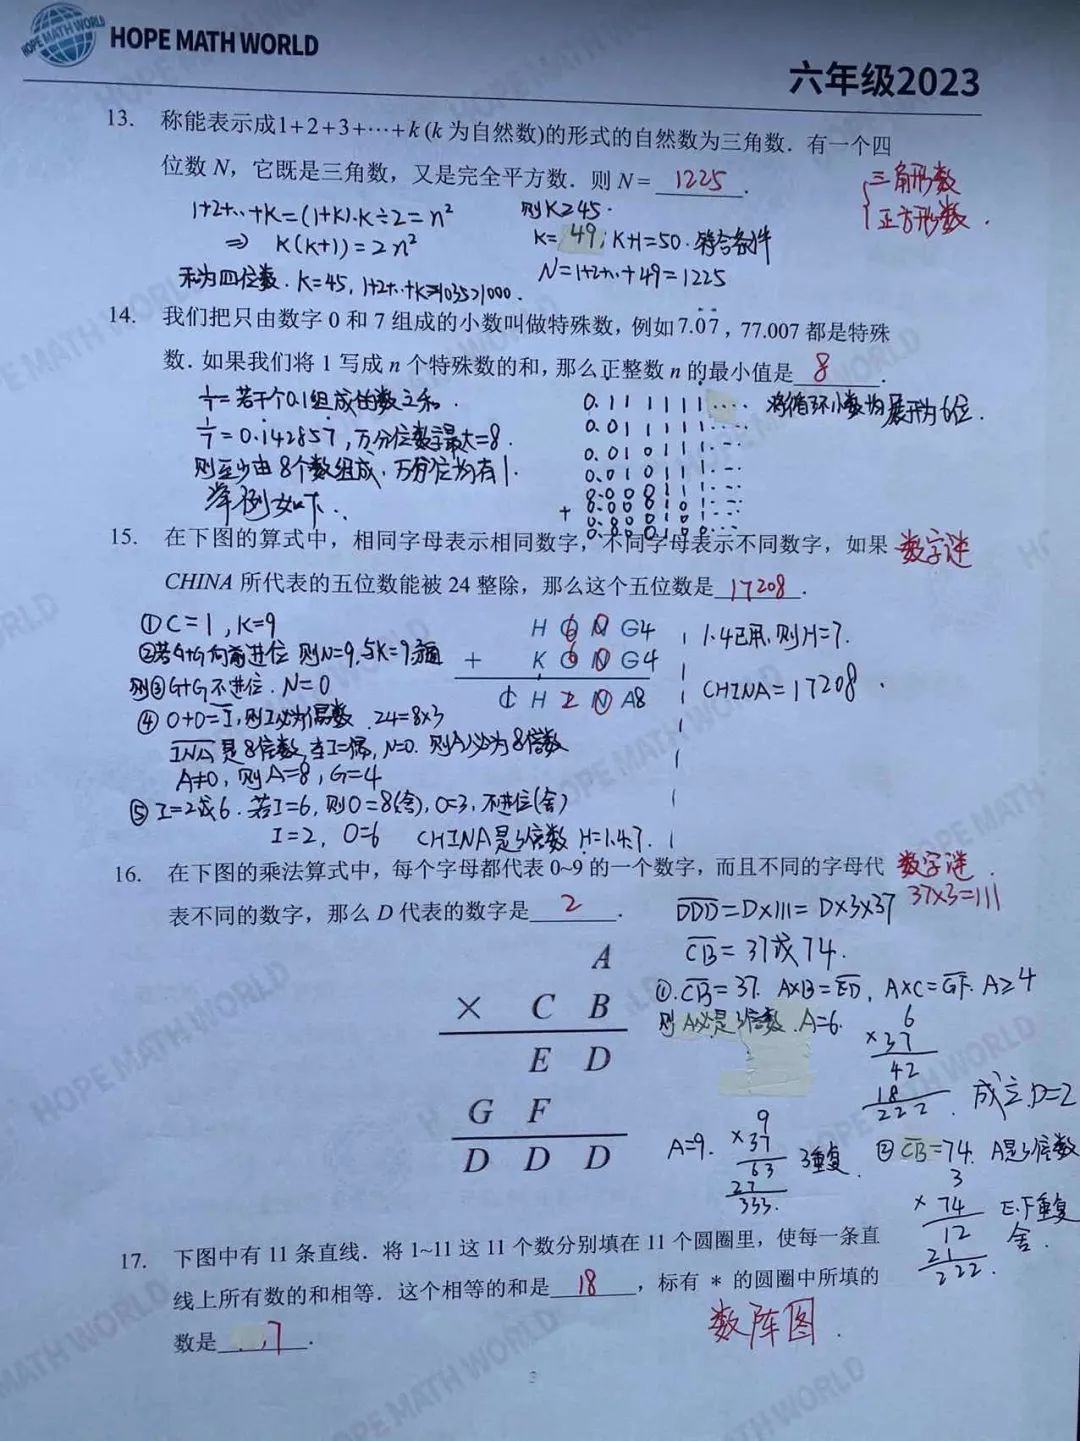 HOPE MATH WORLD
六年级2023
13. 称能表示成1+2+3+···+k (k 为自然数)的形式的自然数为三角数. 有一个四
位数 N, 它既是三角数, 又是完全平方数. 则 N = 1225 .
三角形数
正方形数.
1+2+..+K=(1+K)·K÷2=n²
则K≥45.
⇒ K(K+1)=2n²
K=49, K+1=50. 符合条件
N=1+2+..+49=1225
和为四位数. K=45, 1+2+..+K=1035>1000.
14. 我们把只由数字 0 和 7 组成的小数叫做特殊数, 例如 7.0̇7̇, 77.007 都是特殊
数. 如果我们将 1 写成 n 个特殊数的和, 那么正整数 n 的最小值是 8 .
1/7=若干个0.1组成的数之和.
1/7=0.1̇42857̇, 万分位数字最大=8.
则至少由8个数组成, 万分位均有1.
举例如下.
将循环小数均展开为6位.
0.1111111....
0.0111111....
15. 在下图的算式中, 相同字母表示相同数字, 不同字母表示不同数字, 如果
数字谜
CHINA 所代表的五位数能被 24 整除, 那么这个五位数是 17208 .
①C=1, K=9
②若G+G向前进位 则N=9, 与K=9矛盾
则③G+G不进位. N=0
④ O+O=I, 则I必为偶数. 24=8×3
INA是8倍数, 当I=偶, N=0. 则A必为8倍数
A≠0, 则A=8, G=4
⑤ I=2或6. 若I=6, 则O=8(舍), O=3, 不进位(舍)
I=2, O=6 CHINA是3倍数 H=1.4.7.
H O 6 N 0 G4
+ K O 6 N 0 G4
C 1 H I 2 N 0 A8
1.4已用, 则H=7.
CHINA=17208.
16. 在下图的乘法算式中, 每个字母都代表 0~9 的一个数字, 而且不同的字母代
数字谜.
表不同的数字, 那么 D 代表的数字是 2 .
37×3=111
DDD=D×111=D×3×37
CB=37或74.
A
× C B
E D
G F
D D D
①.CB=37. A×B=ED, A×C=GF. A≥4
则A必是3倍数. A=6.
6
×37
42
18
222. 成立.D=2
A=9.
9
×37
63
27
333.
3重复.
② CB=74. A是3倍数
3
× 74
12
21
222.
E.F重复
舍.
17. 下图中有 11 条直线. 将 1~11 这 11 个数分别填在 11 个圆圈里, 使每一条直
线上所有数的和相等. 这个相等的和是 18 , 标有 * 的圆圈中所填的
数是 7 .
数阵图.